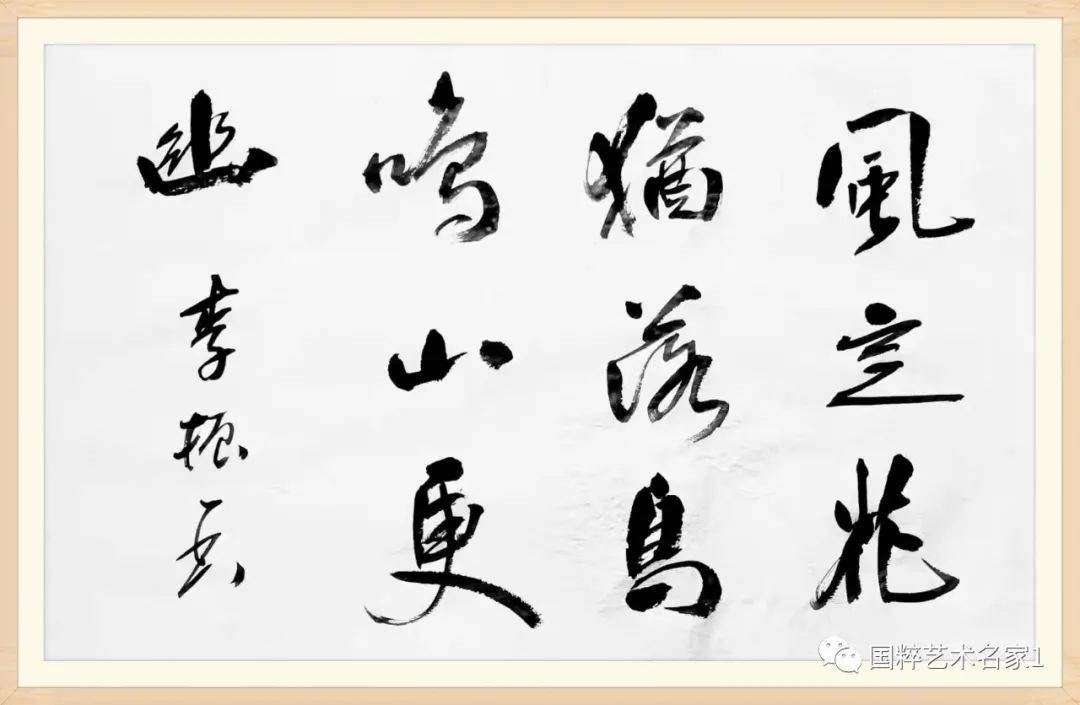 風定花
猶落鳥
鳴山更
幽
李振兵
国粹艺术名家1